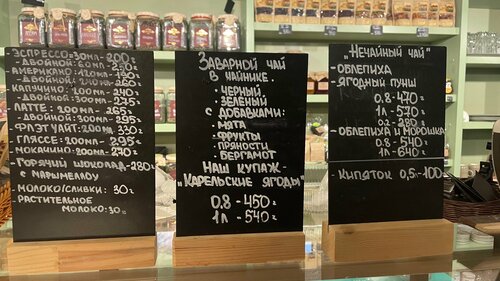 ЭСПРЕССО-30МЛ-200₽
-ДВОЙНОЙ-60МЛ-250
АМЕРИКАНО-120МЛ-190
КАПУЧИНО-200МЛ-240
-ДВОЙНОЙ-300МЛ-275
ЛАТТЕ-300МЛ-275
-ДВОЙНОЙ-300МЛ-295
ФЛЭТ УАЙТ-200МЛ 330₽
ГЛЯССЕ-200МЛ-295
МОКАЧИНО-200МЛ-270₽
-ГОРЯЧИЙ ШОКОЛАД-280₽
С МАРШМЕЛЛОУ
-МОЛОКО/СЛИВКИ: 30₽
-РАСТИТЕЛЬНОЕ
МОЛОКО: 30₽
ЗАВАРНОЙ ЧАЙ
В ЧАЙНИКЕ.
-ЧЕРНЫЙ
-ЗЕЛЕНЫЙ
С ДОБАВКАМИ:
-МЯТА
-ФРУКТЫ
-ПРЯНОСТИ
-БЕРГАМОТ
НАШ КУПАЖ-
„КАРЕЛЬСКИЕ ЯГОДЫ"
0.8-450₽
1Л-540₽
„НЕЧАЙНЫЙ ЧАЙ"
-ОБЛЕПИХА
-ЯГОДНЫЙ ПУНШ
0.8-470₽
1Л-570₽
0.2-280₽
-ОБЛЕПИХА И МОРОШКА
0.8-540₽
1Л-640₽
КИПЯТОК 0,5Л-100₽